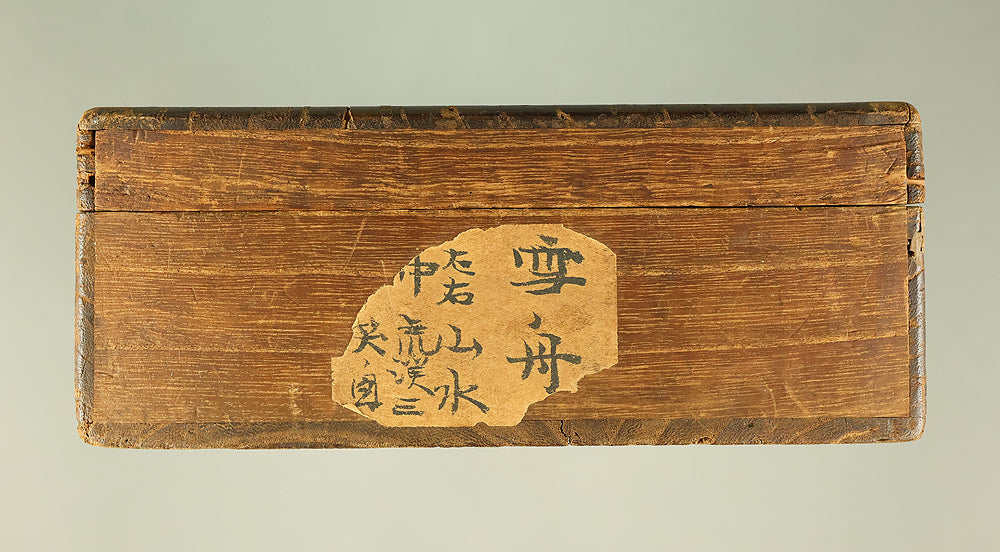 雪舟
左右山水
中虎渓三
笑圖